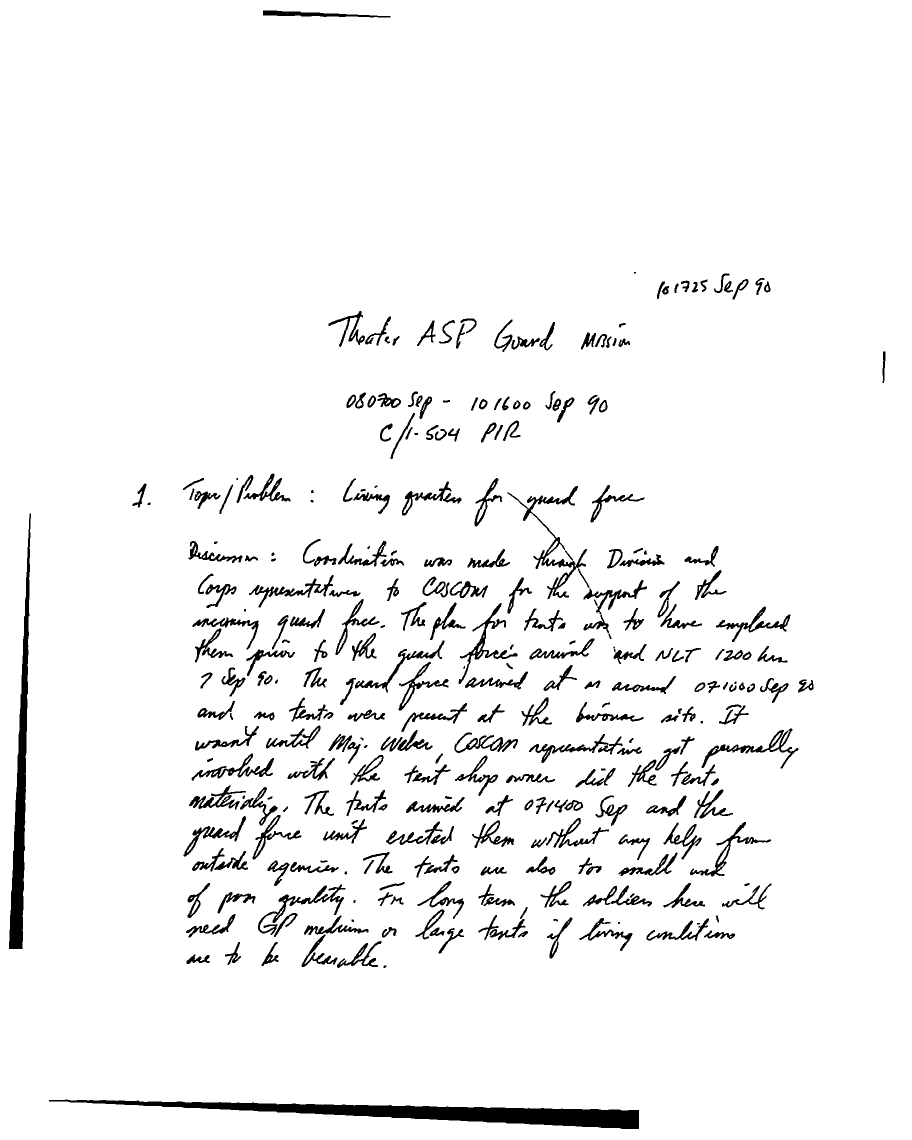 101725 Sep 90
Theater ASP Guard Mission
080700 Sep - 101600 Sep 90
C/1-504 PIR
1. Topic/Problem : Living quarters for guard force
Discussion : Coordination was made through Division and
Corps representatives to COSCOM for the support of the
incoming guard force. The plan for tents was to have emplaced
them prior to the guard force's arrival and NLT 1200 hrs
7 Sep 90. The guard force arrived at or around 071000 Sep 90
and no tents were present at the bivouac site. It
wasn't until Maj. Weber, COSCOM representative got personally
involved with the tent shop owner did the tents
materialize. The tents arrived at 071400 Sep and the
guard force unit erected them without any help from
outside agencies. The tents are also too small and
of poor quality. For long term, the soldiers here will
need GP medium or large tents if living conditions
are to be bearable.